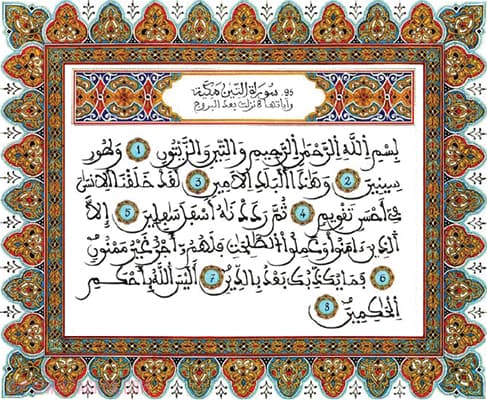 95 سورة التين مكية
وآياتها 8 نزلت بعد البروج
بسم الله الرحمن الرحيم والتين والزيتون 1 وطور
سينين 2 وهذا البلد الامين 3 لقد خلقنا الانسان
في أحسن تقويم 4 ثم رددنه أسفل سافلين 5 إلا
الذين ءامنوا وعملوا الصلحت فلهم أجر غير ممنون
6 فما يكذبك بعد بالدين 7 أليس الله بأحكم
الحكمين 8